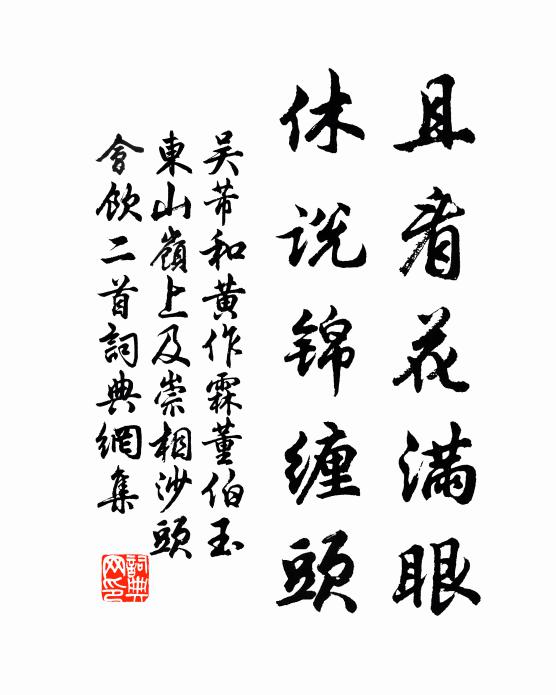 且看花满眼
休说锦缠頭
吴芾和黄作霖董伯玉
東山嶺上及崇相沙頭
會飲二首詞典網集
詞典网印